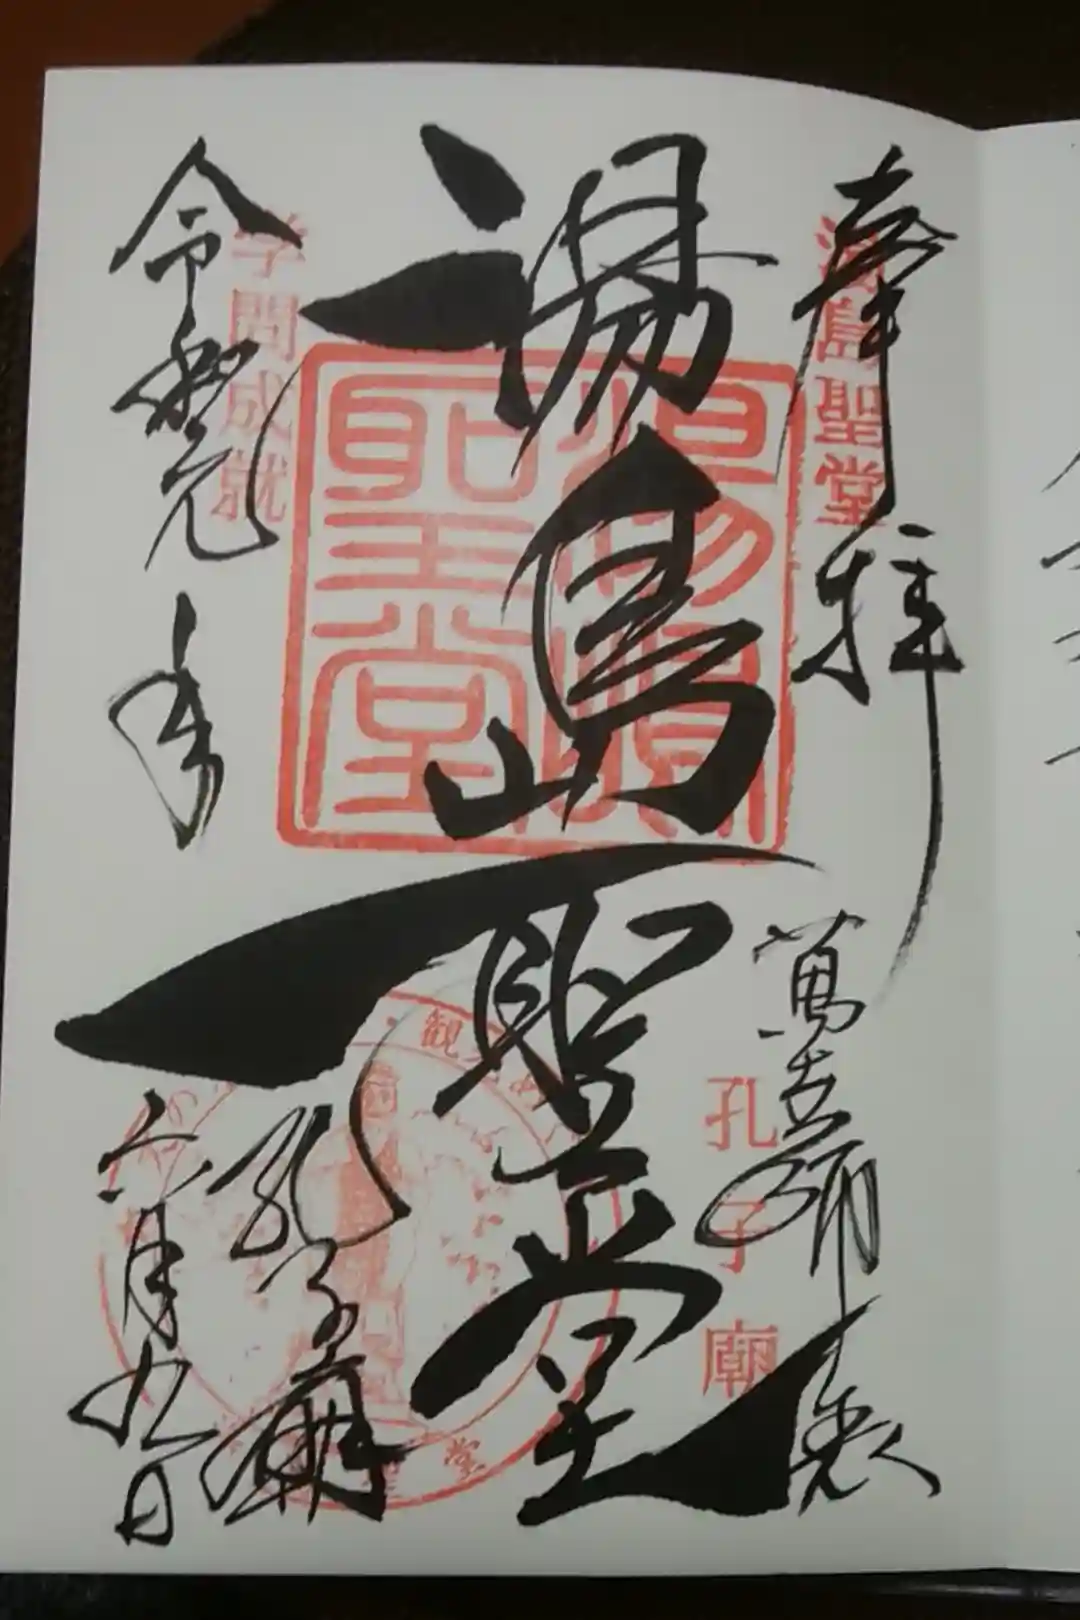 奉拝
湯島聖堂
萬世師表
孔子廟
湯島聖堂
湯島聖堂
孔子廟
学問成就
令和元年
六月九日